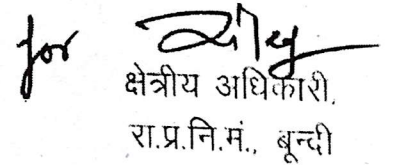 for
क्षेत्रीय अधिकारी,
रा.प्र.नि.मं., बून्दी